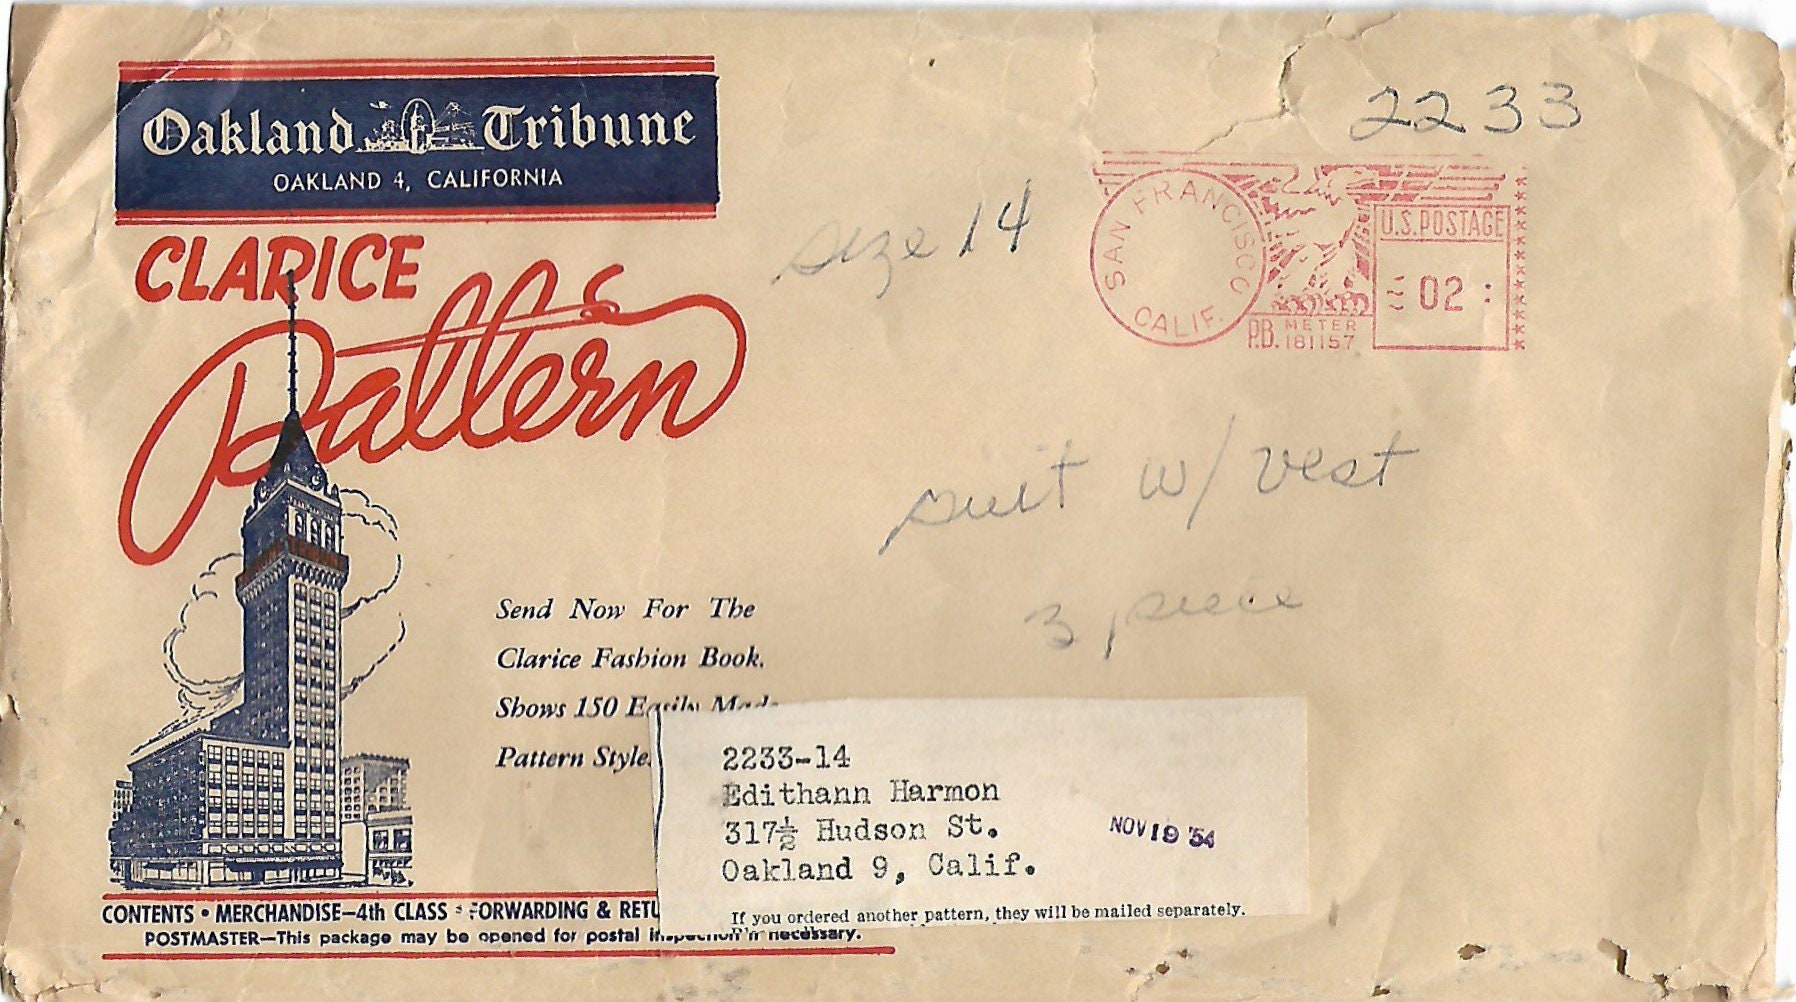 Oakland Tribune
OAKLAND 4, CALIFORNIA
CLARICE
Pattern
2233
size 14
SAN FRANCISCO
CALIF.
U.S. POSTAGE
02
P.B. METER
181157
suit w/ vest
3 piece
Send Now For The
Clarice Fashion Book.
Shows 150 Easily Made
Pattern Style
2233-14
Edithann Harmon
317½ Hudson St.
Oakland 9, Calif.
NOV 19 '54
If you ordered another pattern, they will be mailed separately.
CONTENTS • MERCHANDISE—4th CLASS • FORWARDING & RETU
POSTMASTER—This package may be opened for postal inspection if necessary.